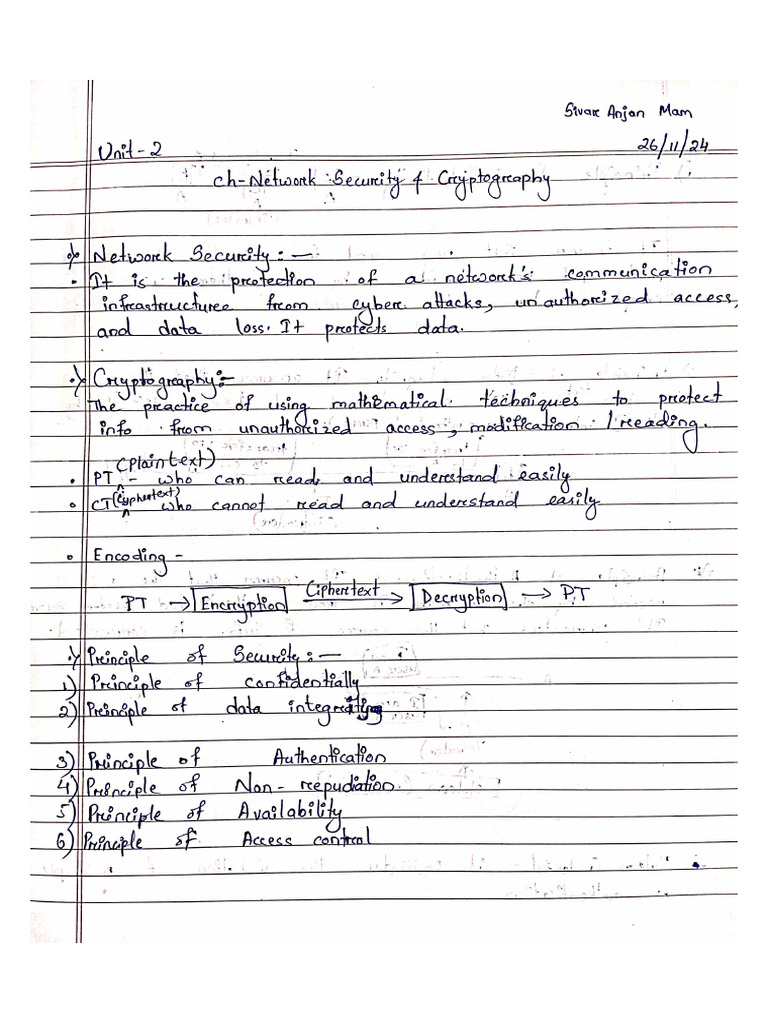 Sivar Anjan Mam
Unit-2 26/11/24
ch-Network Security & Cryptography
Network Security:-
• It is the protection of a network's communication
infrastructure from cyber attacks, unauthorized access,
and data loss. It protects data.
Cryptography:-
The practice of using mathematical techniques to protect
info from unauthorized access, modification / reading.
(Plain text)
• PT - who can read and understand easily
• CT (Cyphertext) who cannot read and understand easily
• Encoding -
PT → Encryption Ciphertext → Decryption → PT
Principle of Security:-
1) Principle of confidentially
2) Principle of data
3) Principle of Authentication
4) Principle of Non-repudiation.
5) Principle of Availability
6) Principle of Access control